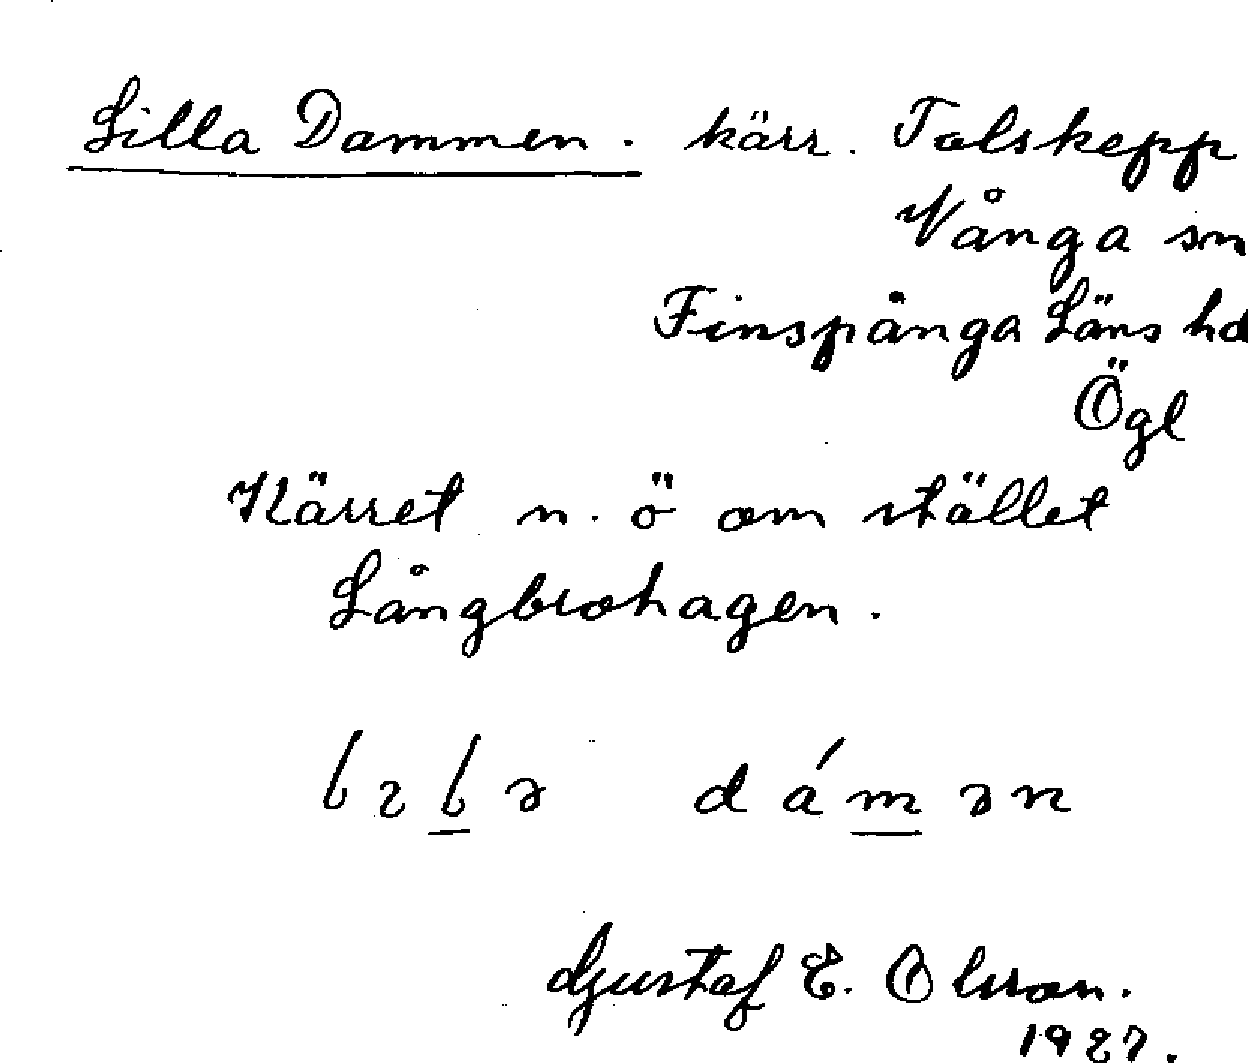 Lilla Dammen. kärr. Tolskepp
Vånga sn
Finspånga Läns hd
Ögl
Kärret n. ö om stället
Långbrohagen.
Gustaf E. Olsson.
1927.